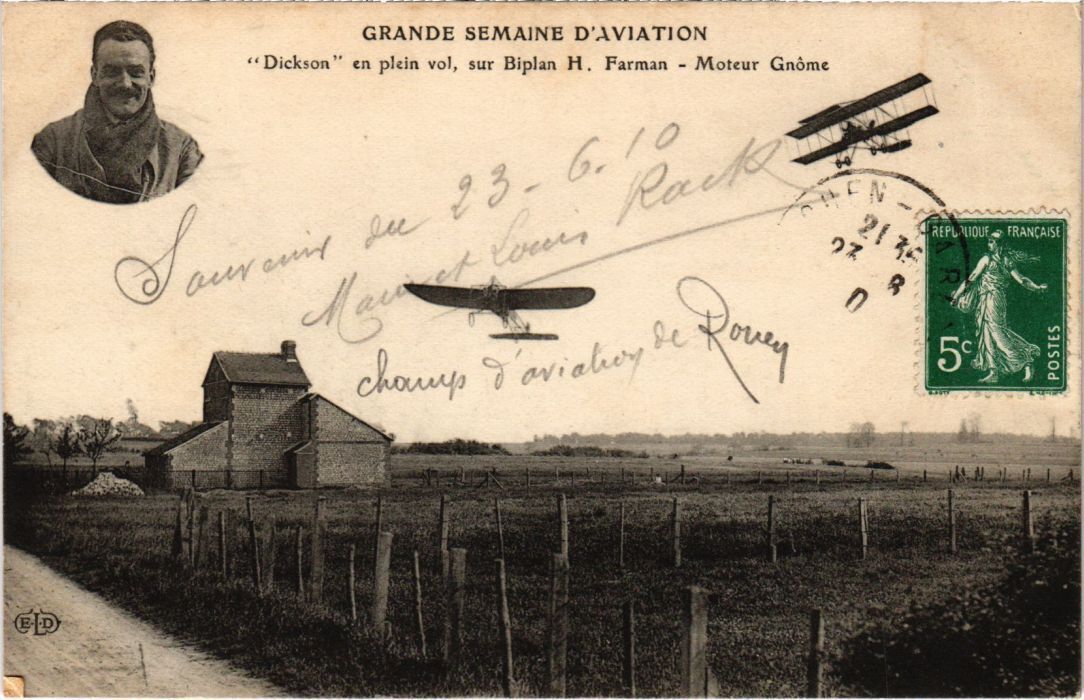 GRANDE SEMAINE D'AVIATION
"Dickson" en plein vol, sur Biplan H. Farman - Moteur Gnôme
Souvenir du 23-6.10
Louis
champ d'aviation de Rouen
ROUEN-GARE
21 35
23
RÉPUBLIQUE FRANÇAISE
5c
POSTES
E.L.D